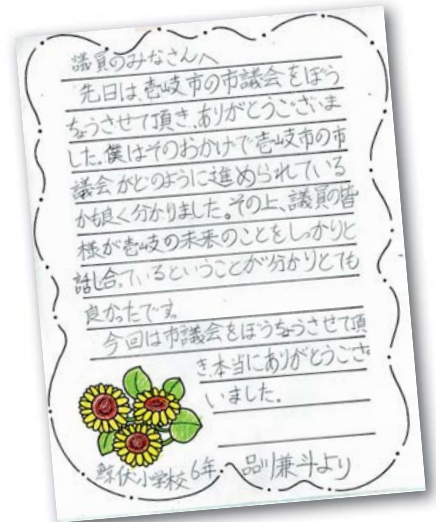 議員のみなさんへ
先日は、壱岐市の市議会をぼう
ちょうさせて頂き、ありがとうございま
した。僕はそのおかげで壱岐市の市
議会がどのように進められている
かも良く分かりました。その上、議員の皆
様が壱岐の未来のことをしっかりと
話し合っているということが分かりとても
良かったです。
今回は市議会をぼうちょうさせて頂
き、本当にありがとうござ
いました。
鯨伏小学校6年 品川兼斗より